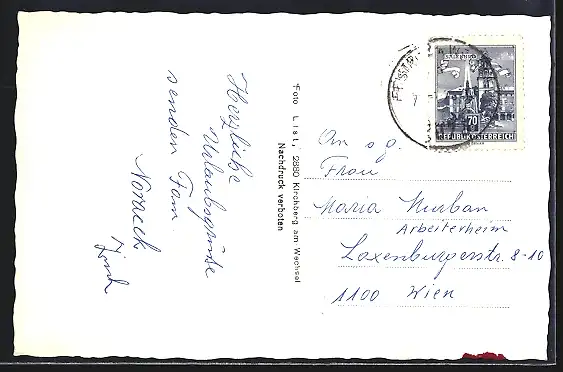 Herzliche
Urlaubsgrüße
senden Fam.
"Foto L i s l", 2880 Kirchberg am Wechsel
Nachdruck verboten
SALZBURG
70
REPUBLIK ÖSTERREICH
An s.g.
Frau
Maria Kurban
Arbeiterheim
Laxenburgerstr. 8-10
1100 Wien